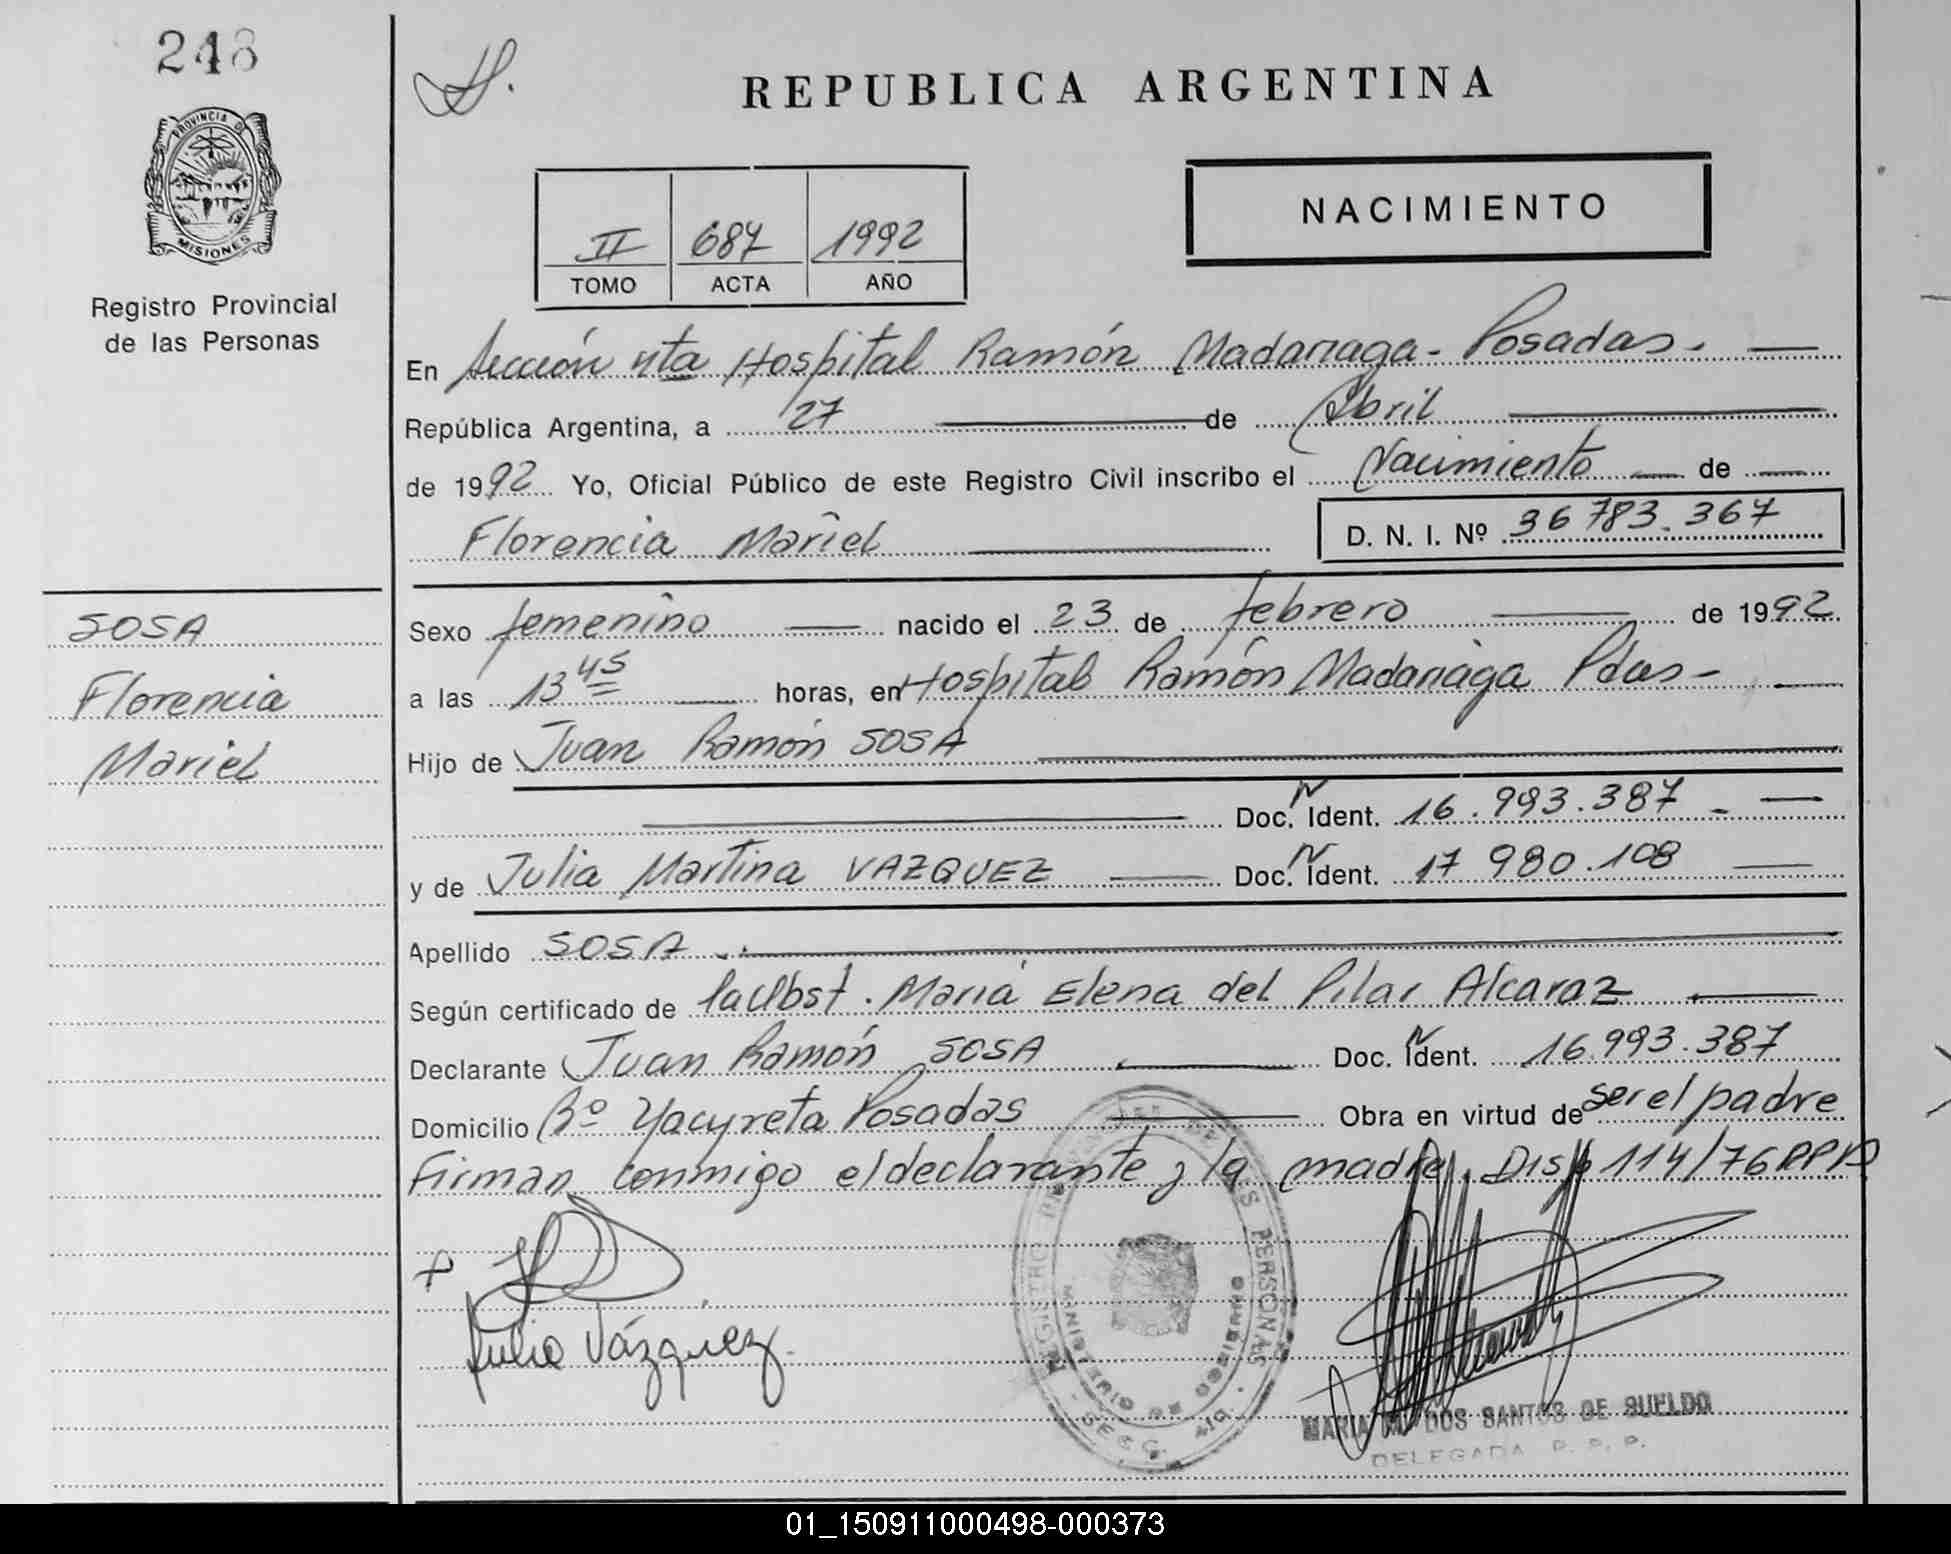 248
PROVINCIA DE
MISIONES
Registro Provincial
de las Personas
REPUBLICA ARGENTINA
NACIMIENTO
II 687 1992
TOMO ACTA AÑO
En Sección 4ta Hospital Ramón Madariaga - Posadas. —
República Argentina, a 27 — de Abril —
de 1992 Yo, Oficial Público de este Registro Civil inscribo el Nacimiento — de —
Florencia Mariel — D. N. I. Nº 36 783.367
SOSA
Florencia
Mariel
Sexo femenino — nacido el 23 de febrero — de 1992.
a las 13 45 — horas, en Hospital Ramón Madariaga Pdas - —
Hijo de Juan Ramón SOSA —
— Doc. N Ident. 16.993.387 - —
y de Julia Martina VAZQUEZ — Doc. N Ident. 17 980.108 —
Apellido SOSA . —
Según certificado de la Obst. María Elena del Pilar Alcaraz —
Declarante Juan Ramón SOSA — Doc. N Ident. 16.993.387
Domicilio Bº Yacyreta Posadas — Obra en virtud de ser el padre
Firman conmigo el declarante y la madre. Disp 114/76 RPP
Julia Vázquez.
REGISTRO PROVINCIAL DE LAS PERSONAS
MINISTERIO DE GOBIERNO
MARIA M. DOS SANTOS DE SUELDO
DELEGADA R. P. P.
01_150911000498-000373